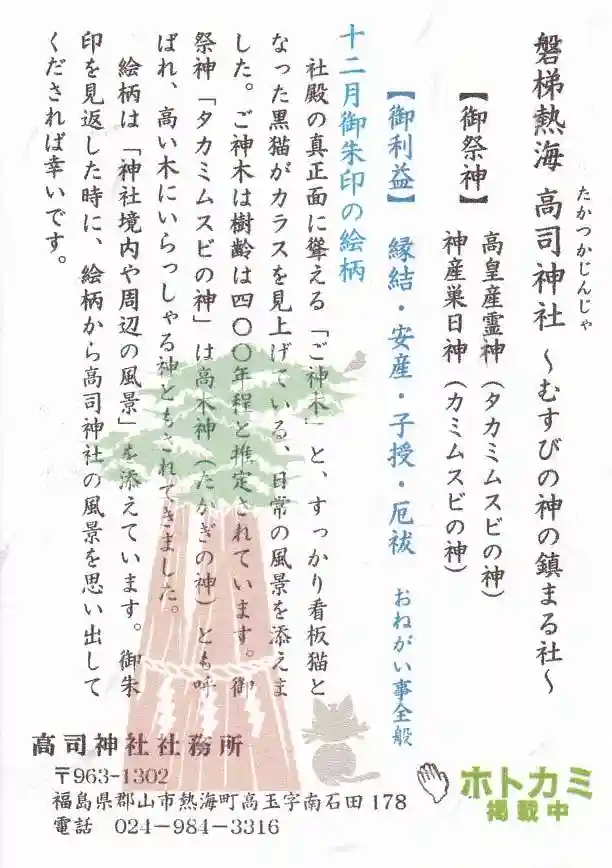 たかつかじんじゃ
磐梯熱海 高司神社 ～むすびの神の鎮まる社～
【御祭神】 高皇産霊神（タカミムスビの神）
神産巣日神（カミムスビの神）
【御利益】 縁結・安産・子授・厄祓 おねがい事全般
十二月御朱印の絵柄
社殿の真正面に聳える「ご神木」と、すっかり看板猫と
なった黒猫がカラスを見上げている、日常の風景を添えま
した。ご神木は樹齢は四〇〇年程と推定されています。御
祭神「タカミムスビの神」は高木神（たかぎの神）とも呼
ばれ、高い木にいらっしゃる神ともされてきました。
絵柄は「神社境内や周辺の風景」を添えています。御朱
印を見返した時に、絵柄から高司神社の風景を思い出して
くだされば幸いです。
高司神社社務所
〒963-1302
福島県郡山市熱海町高玉字南石田178
電話 024-984-3316
ホトカミ
掲載中